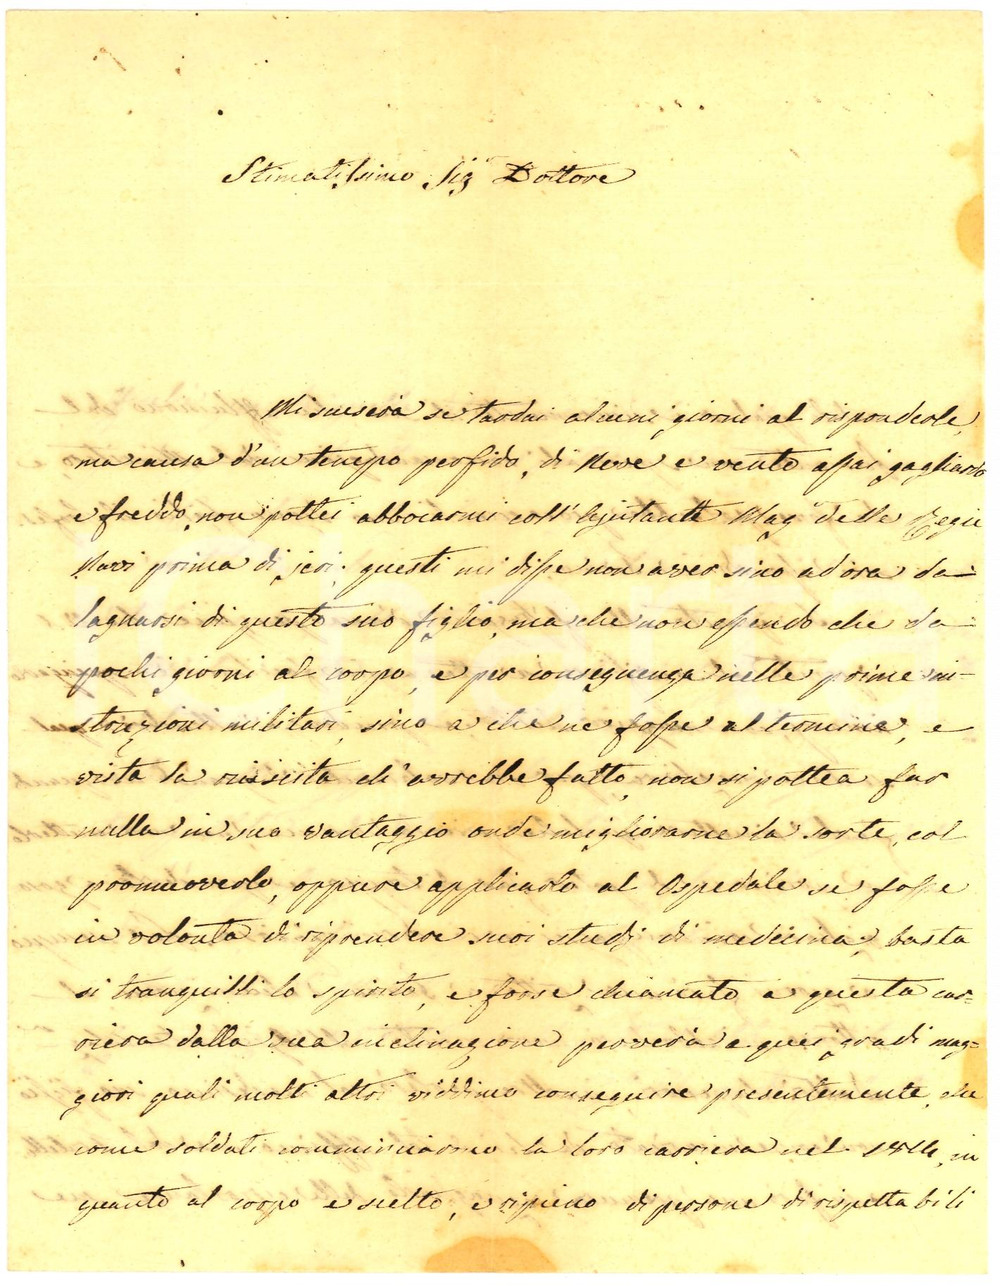 Stimatissimo Sig.r Dottore
Mi scuserà se tardai alcuni giorni al risponderle,
ma causa d'un tempo perfido, di Neve e vento assai gagliardo
e freddo, non pottei abbocarmi coll'Ajutante Mag.e delle Regie
Navi prima di jeri; questi mi disse non aver sino ad ora da
lagnarsi di questo suo figlio, ma che non essendo che da
pochi giorni al corpo, e per conseguenza nelle prime in-
struzioni militari, sino a che ne fosse al termine, e
vista la riuscita ch'avrebbe fatto, non si pottea far
nulla in suo vantaggio onde migliorarne la sorte, col
promuoverlo, oppure applicarlo al Ospedale se fosse
in volontà di riprendere suoi studj di medicina, basta
si tranquilli lo spirito, e forse chiamato a questa car-
riera dalla sua inclinazione perverrà a quei gradi mag-
giori quali molti altri viddimo conseguire presentemente, che
come soldati comminciarno la loro carriera nel 1814, in
quanto al corpo e scelto, e ripieno di persone di rispettabili